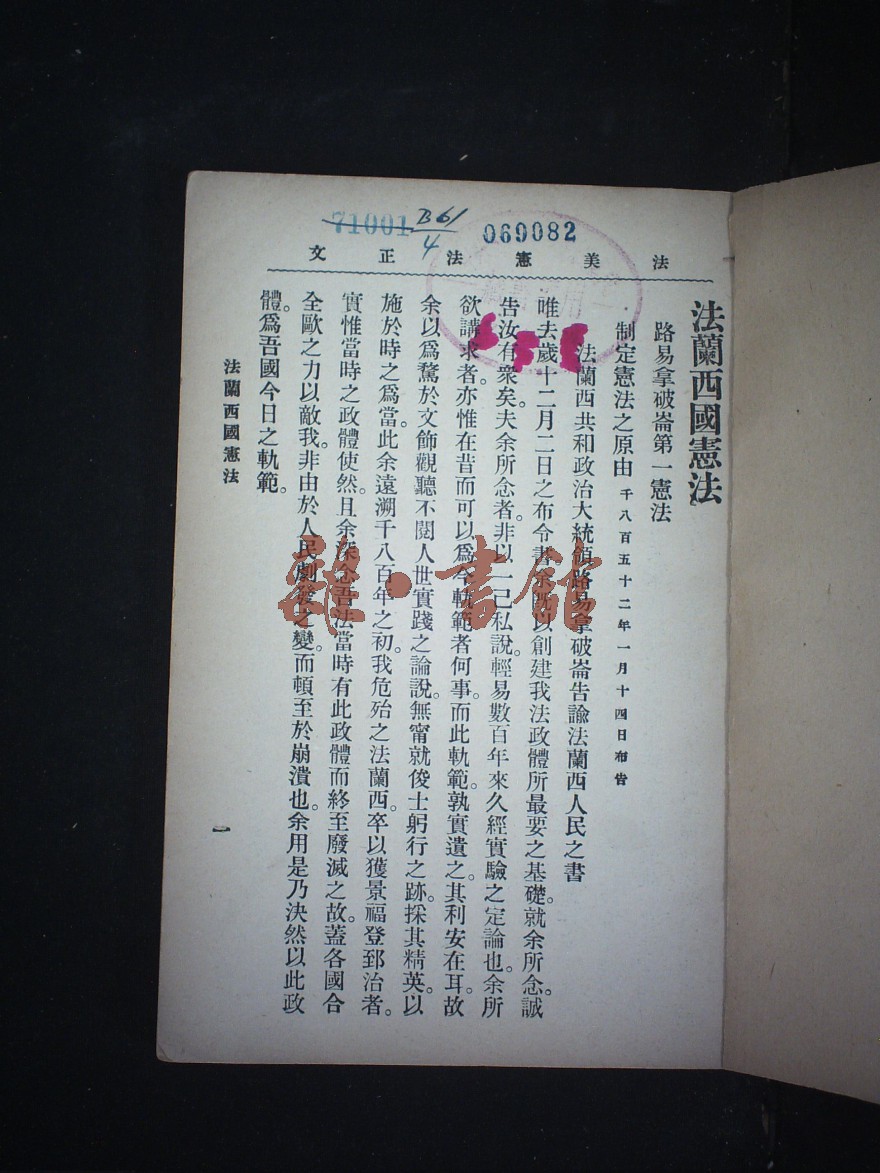 71001
B61
4
069082
法美憲法正文
法蘭西國憲法
路易拿破崙第一憲法
制定憲法之原由 千八百五十二年一月十四日布告
法蘭西共和政治大統領路易拿破崙告諭法蘭西人民之書
唯去歲十二月二日之布令書余既以創建我法政體所最要之基礎。就余所念。誠
告汝有衆矣。夫余所念者。非以一己私說。輕易數百年來久經實驗之定論也。余所
欲講求者。亦惟在昔而可以爲今軌範者何事。而此軌範。孰實遺之。其利安在耳。故
余以爲騖於文飾觀聽不閱人世實踐之論說。無甯就俊士躬行之跡。採其精英。以
施於時之爲當。此余遠溯千八百年之初。我危殆之法蘭西。卒以獲景福登郅治者。
實惟當時之政體使然。且余深念吾法當時有此政體而終至廢滅之故。蓋各國合
全歐之力以敵我。非由於人民劇發之變。而頓至於崩潰也。余用是乃決然以此政
體。爲吾國今日之軌範。
法蘭西國憲法
一
雜·書館